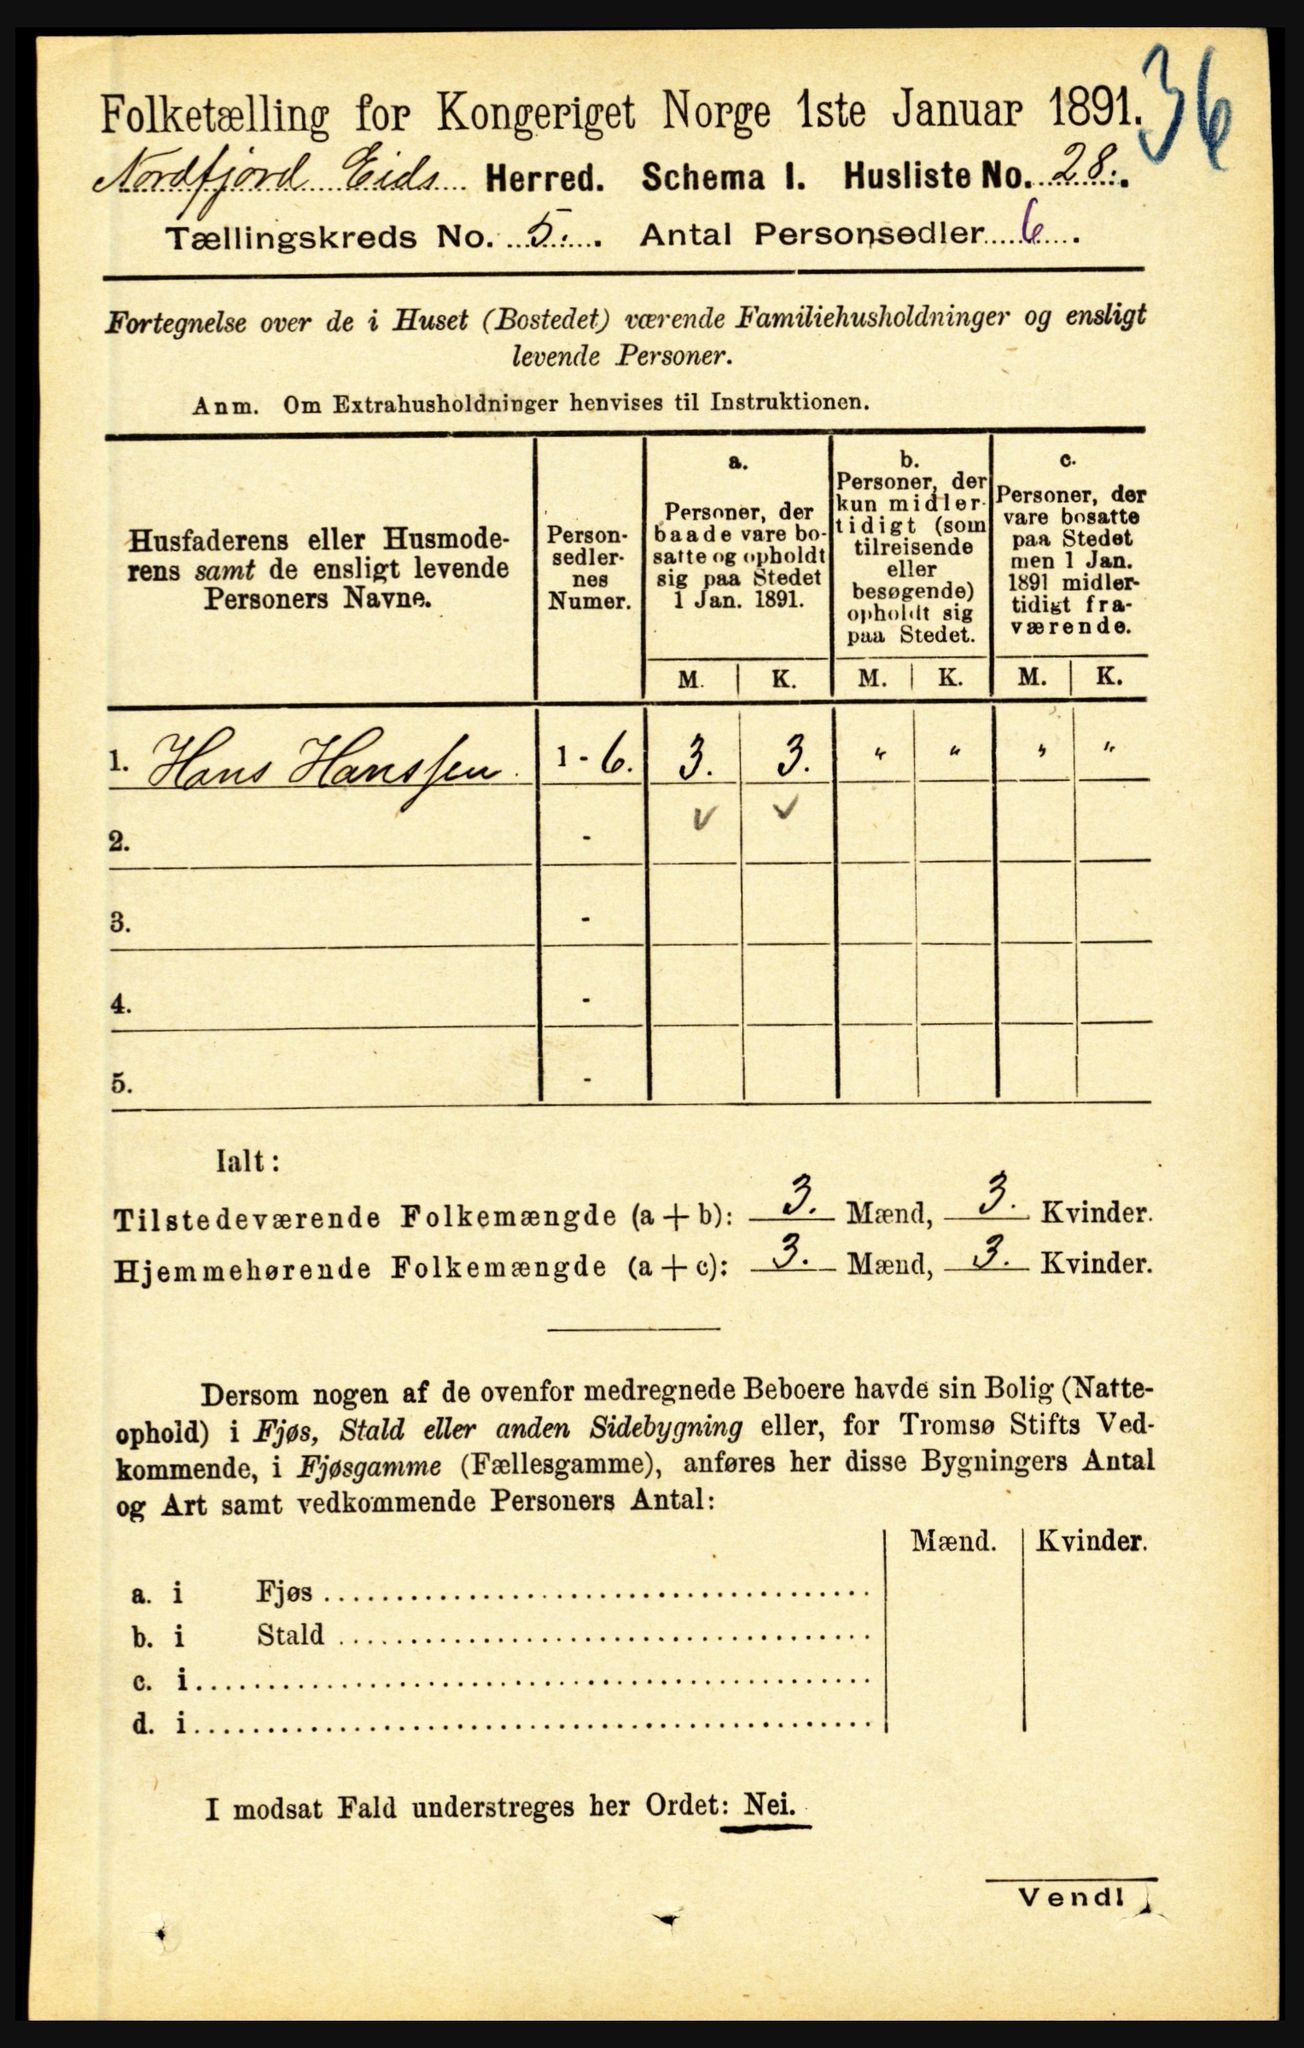 36
Folketælling for Kongeriget Norge 1ste Januar 1891.
Nordfjord Eids Herred. Schema I. Husliste No. 28.
Tællingskreds No. 5. Antal Personsedler 6.
Fortegnelse over de i Huset (Bostedet) værende Familiehusholdninger og ensligt
levende Personer.
Anm. Om Extrahusholdninger henvises til Instruktionen.
Husfaderens eller Husmode-
rens samt de ensligt levende
Personers Navne.
Person-
sedler-
nes
Numer.
a.
Personer, der
baade vare bo-
satte og opholdt
sig paa Stedet
1 Jan. 1891.
b.
Personer, der
kun midler-
tidigt (som
tilreisende
eller
besøgende)
opholdt sig
paa Stedet.
c.
Personer, der
vare bosatte
paa Stedet
men 1 Jan.
1891 midler-
tidigt fra-
værende.
M. K. M. K. M. K.
1. Hans Hanssen. 1 - 6. 3. 3. " " " "
2. - ✓ ✓
3. -
4. -
5. -
Ialt:
Tilstedeværende Folkemængde (a + b): 3. Mænd, 3. Kvinder.
Hjemmehørende Folkemængde (a + c): 3. Mænd, 3. Kvinder.
Dersom nogen af de ovenfor medregnede Beboere havde sin Bolig (Natte-
ophold) i Fjøs, Stald eller anden Sidebygning eller, for Tromsø Stifts Ved-
kommende, i Fjøsgamme (Fællesgamme), anføres her disse Bygningers Antal
og Art samt vedkommende Personers Antal:
Mænd. Kvinder.
a. i Fjøs
b. i Stald
c. i
d. i
I modsat Fald understreges her Ordet: Nei.
Vend!